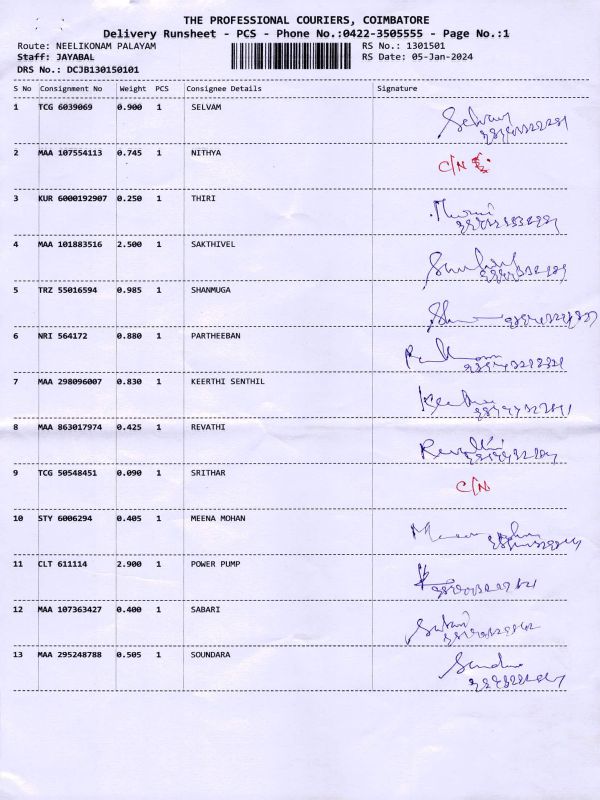 THE PROFESSIONAL COURIERS, COIMBATORE
Delivery Runsheet - PCS - Phone No.:0422-3505555 - Page No.:1
Route: NEELIKONAM PALAYAM RS No.: 1301501
Staff: JAYABAL RS Date: 05-Jan-2024
DRS No.: DCJB130150101
S No Consignment No Weight PCS Consignee Details Signature
1 TCG 6039069 0.900 1 SELVAM Selvam
2 MAA 107554113 0.745 1 NITHYA C/N
3 KUR 6000192907 0.250 1 THIRI
4 MAA 101883516 2.500 1 SAKTHIVEL
5 TRZ 55016594 0.985 1 SHANMUGA
6 NRI 564172 0.880 1 PARTHEEBAN
7 MAA 298096007 0.830 1 KEERTHI SENTHIL
8 MAA 863017974 0.425 1 REVATHI Revathi
9 TCG 50548451 0.090 1 SRITHAR C/N
10 STY 6006294 0.405 1 MEENA MOHAN
11 CLT 611114 2.900 1 POWER PUMP
12 MAA 107363427 0.400 1 SABARI
13 MAA 295248788 0.505 1 SOUNDARA